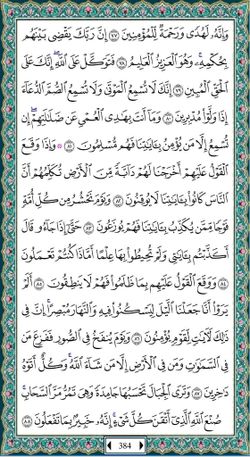 وَإِنَّهُۥ لَهُدًى وَرَحْمَةٌ لِّلْمُؤْمِنِينَ ٧٧ إِنَّ رَبَّكَ يَقْضِى بَيْنَهُم
بِحُكْمِهِۦ وَهُوَ ٱلْعَزِيزُ ٱلْعَلِيمُ ٧٨ فَتَوَكَّلْ عَلَى ٱللَّهِ إِنَّكَ عَلَى
ٱلْحَقِّ ٱلْمُبِينِ ٧٩ إِنَّكَ لَا تُسْمِعُ ٱلْمَوْتَىٰ وَلَا تُسْمِعُ ٱلصُّمَّ ٱلدُّعَآءَ
إِذَا وَلَّوْا۟ مُدْبِرِينَ ٨٠ وَمَآ أَنتَ بِهَـٰدِى ٱلْعُمْىِ عَن ضَلَـٰلَتِهِمْ إِن
تُسْمِعُ إِلَّا مَن يُؤْمِنُ بِـَٔايَـٰتِنَا فَهُم مُّسْلِمُونَ ٨١ ۞ وَإِذَا وَقَعَ
ٱلْقَوْلُ عَلَيْهِمْ أَخْرَجْنَا لَهُمْ دَآبَّةً مِّنَ ٱلْأَرْضِ تُكَلِّمُهُمْ أَنَّ
ٱلنَّاسَ كَانُوا۟ بِـَٔايَـٰتِنَا لَا يُوقِنُونَ ٨٢ وَيَوْمَ نَحْشُرُ مِن كُلِّ أُمَّةٍ
فَوْجًا مِّمَّن يُكَذِّبُ بِـَٔايَـٰتِنَا فَهُمْ يُوزَعُونَ ٨٣ حَتَّىٰٓ إِذَا جَآءُو قَالَ
أَكَذَّبْتُم بِـَٔايَـٰتِى وَلَمْ تُحِيطُوا۟ بِهَا عِلْمًا أَمَّاذَا كُنتُمْ تَعْمَلُونَ
٨٤ وَوَقَعَ ٱلْقَوْلُ عَلَيْهِم بِمَا ظَلَمُوا۟ فَهُمْ لَا يَنطِقُونَ ٨٥ أَلَمْ
يَرَوْا۟ أَنَّا جَعَلْنَا ٱلَّيْلَ لِيَسْكُنُوا۟ فِيهِ وَٱلنَّهَارَ مُبْصِرًا إِنَّ فِى
ذَٰلِكَ لَـَٔايَـٰتٍ لِّقَوْمٍ يُؤْمِنُونَ ٨٦ وَيَوْمَ يُنفَخُ فِى ٱلصُّورِ فَفَزِعَ مَن
فِى ٱلسَّمَـٰوَٰتِ وَمَن فِى ٱلْأَرْضِ إِلَّا مَن شَآءَ ٱللَّهُ وَكُلٌّ أَتَوْهُ
دَٰخِرِينَ ٨٧ وَتَرَى ٱلْجِبَالَ تَحْسَبُهَا جَامِدَةً وَهِىَ تَمُرُّ مَرَّ ٱلسَّحَابِ
صُنْعَ ٱللَّهِ ٱلَّذِىٓ أَتْقَنَ كُلَّ شَىْءٍ إِنَّهُۥ خَبِيرٌۢ بِمَا تَفْعَلُونَ ٨٨
384